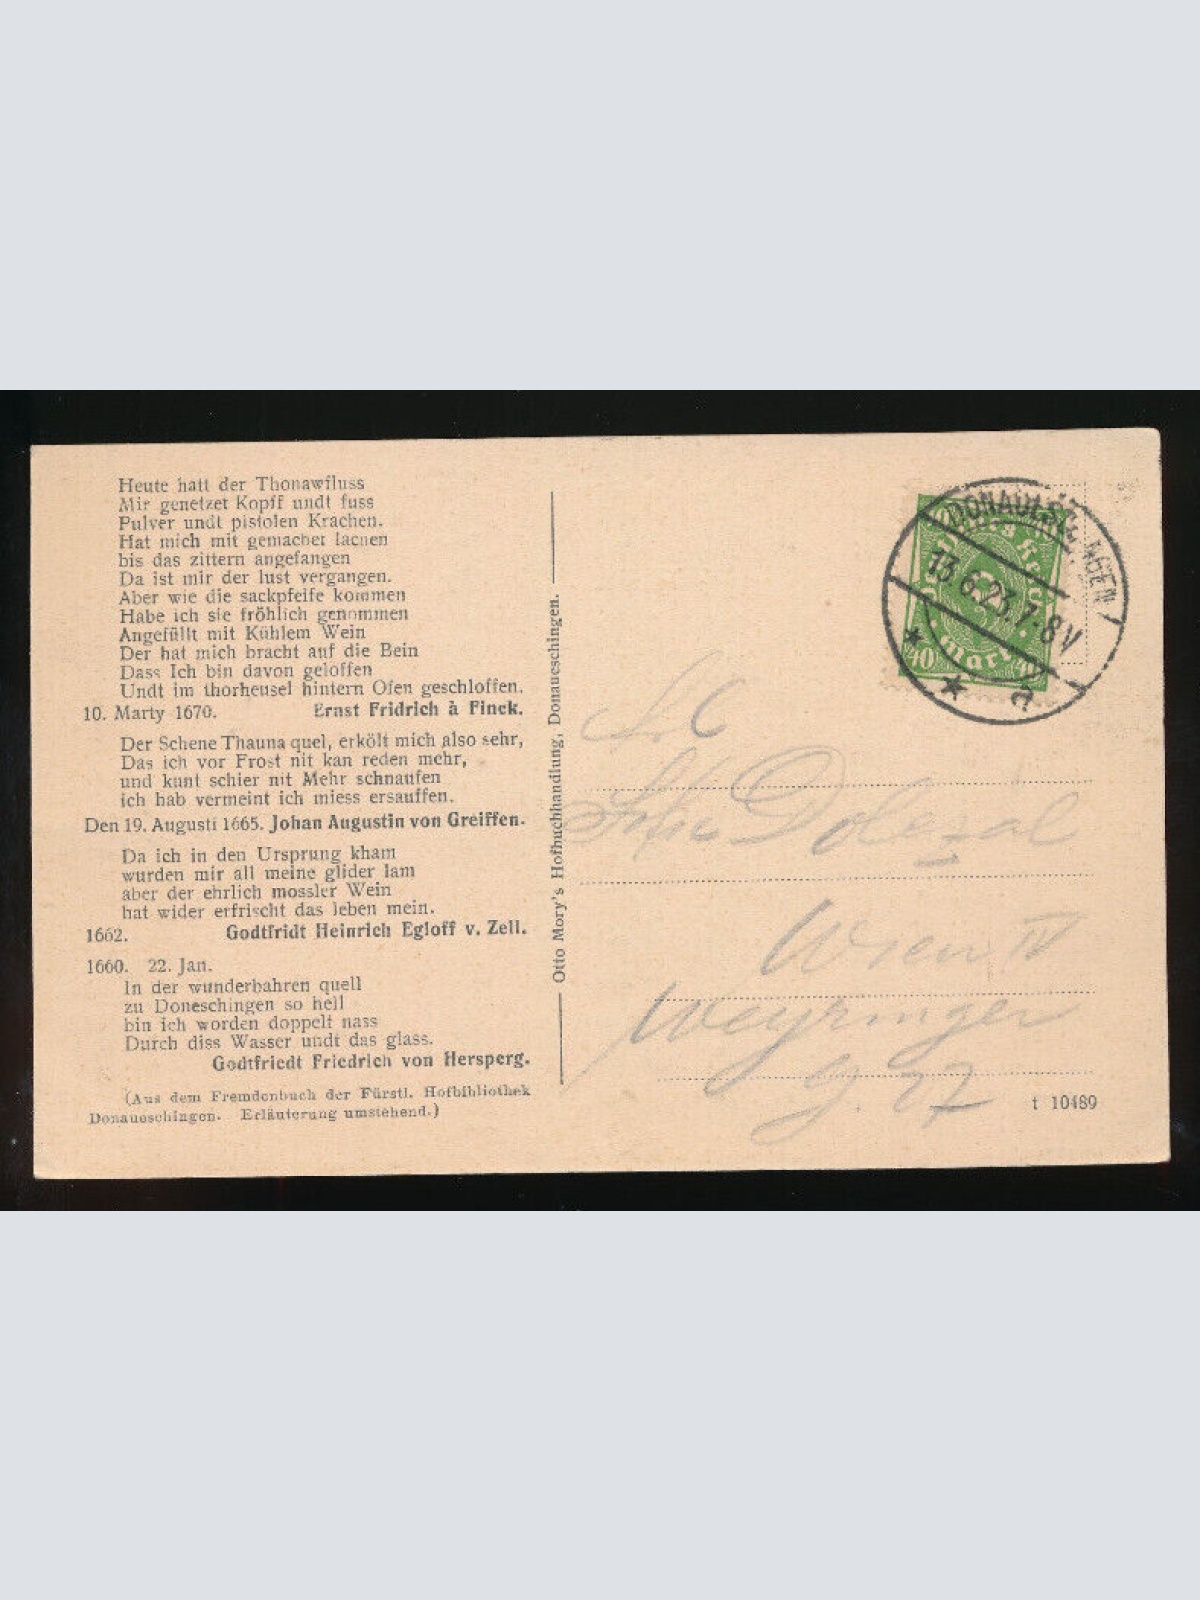 Heute hatt der Thonawfluss
Mir genetzet Kopff undt fuss
Pulver undt pistolen Krachen.
Hat mich mit gemachet lachen
bis das zittern angefangen
Da ist mir der lust vergangen.
Aber wie die sackpfeife kommen
Habe ich sie fröhlich genommen
Angefüllt mit Kühlem Wein
Der hat mich bracht auf die Bein
Dass Ich bin davon geloffen
Undt im thorheusel hintern Ofen geschloffen.
10. Marty 1670. Ernst Fridrich à Finck.
Der Schene Thauna quel, erkölt mich also sehr,
Das ich vor Frost nit kan reden mehr,
und kunt schier nit Mehr schnaufen
ich hab vermeint ich miess ersauffen.
Den 19. Augusti 1665. Johan Augustin von Greiffen.
Da ich in den Ursprung kham
wurden mir all meine glider lam
aber der ehrlich mossler Wein
hat wider erfrischt das leben mein.
1662. Godtfridt Heinrich Egloff v. Zell.
1660. 22. Jan.
In der wunderbahren quell
zu Doneschingen so hell
bin ich worden doppelt nass
Durch diss Wasser undt das glass.
Godtfriedt Friedrich von Hersperg.
(Aus dem Fremdenbuch der Fürstl. Hofbibliothek
Donaueschingen. Erläuterung umstehend.)
Otto Mory's Hofbuchhandlung, Donaueschingen.
DONAUESCHINGEN
13.6.23.7-8V
* * a
Deutsches Reich
40 mark 40
Dolezal
Wien IV
Weyringer
g. 27
t 10489